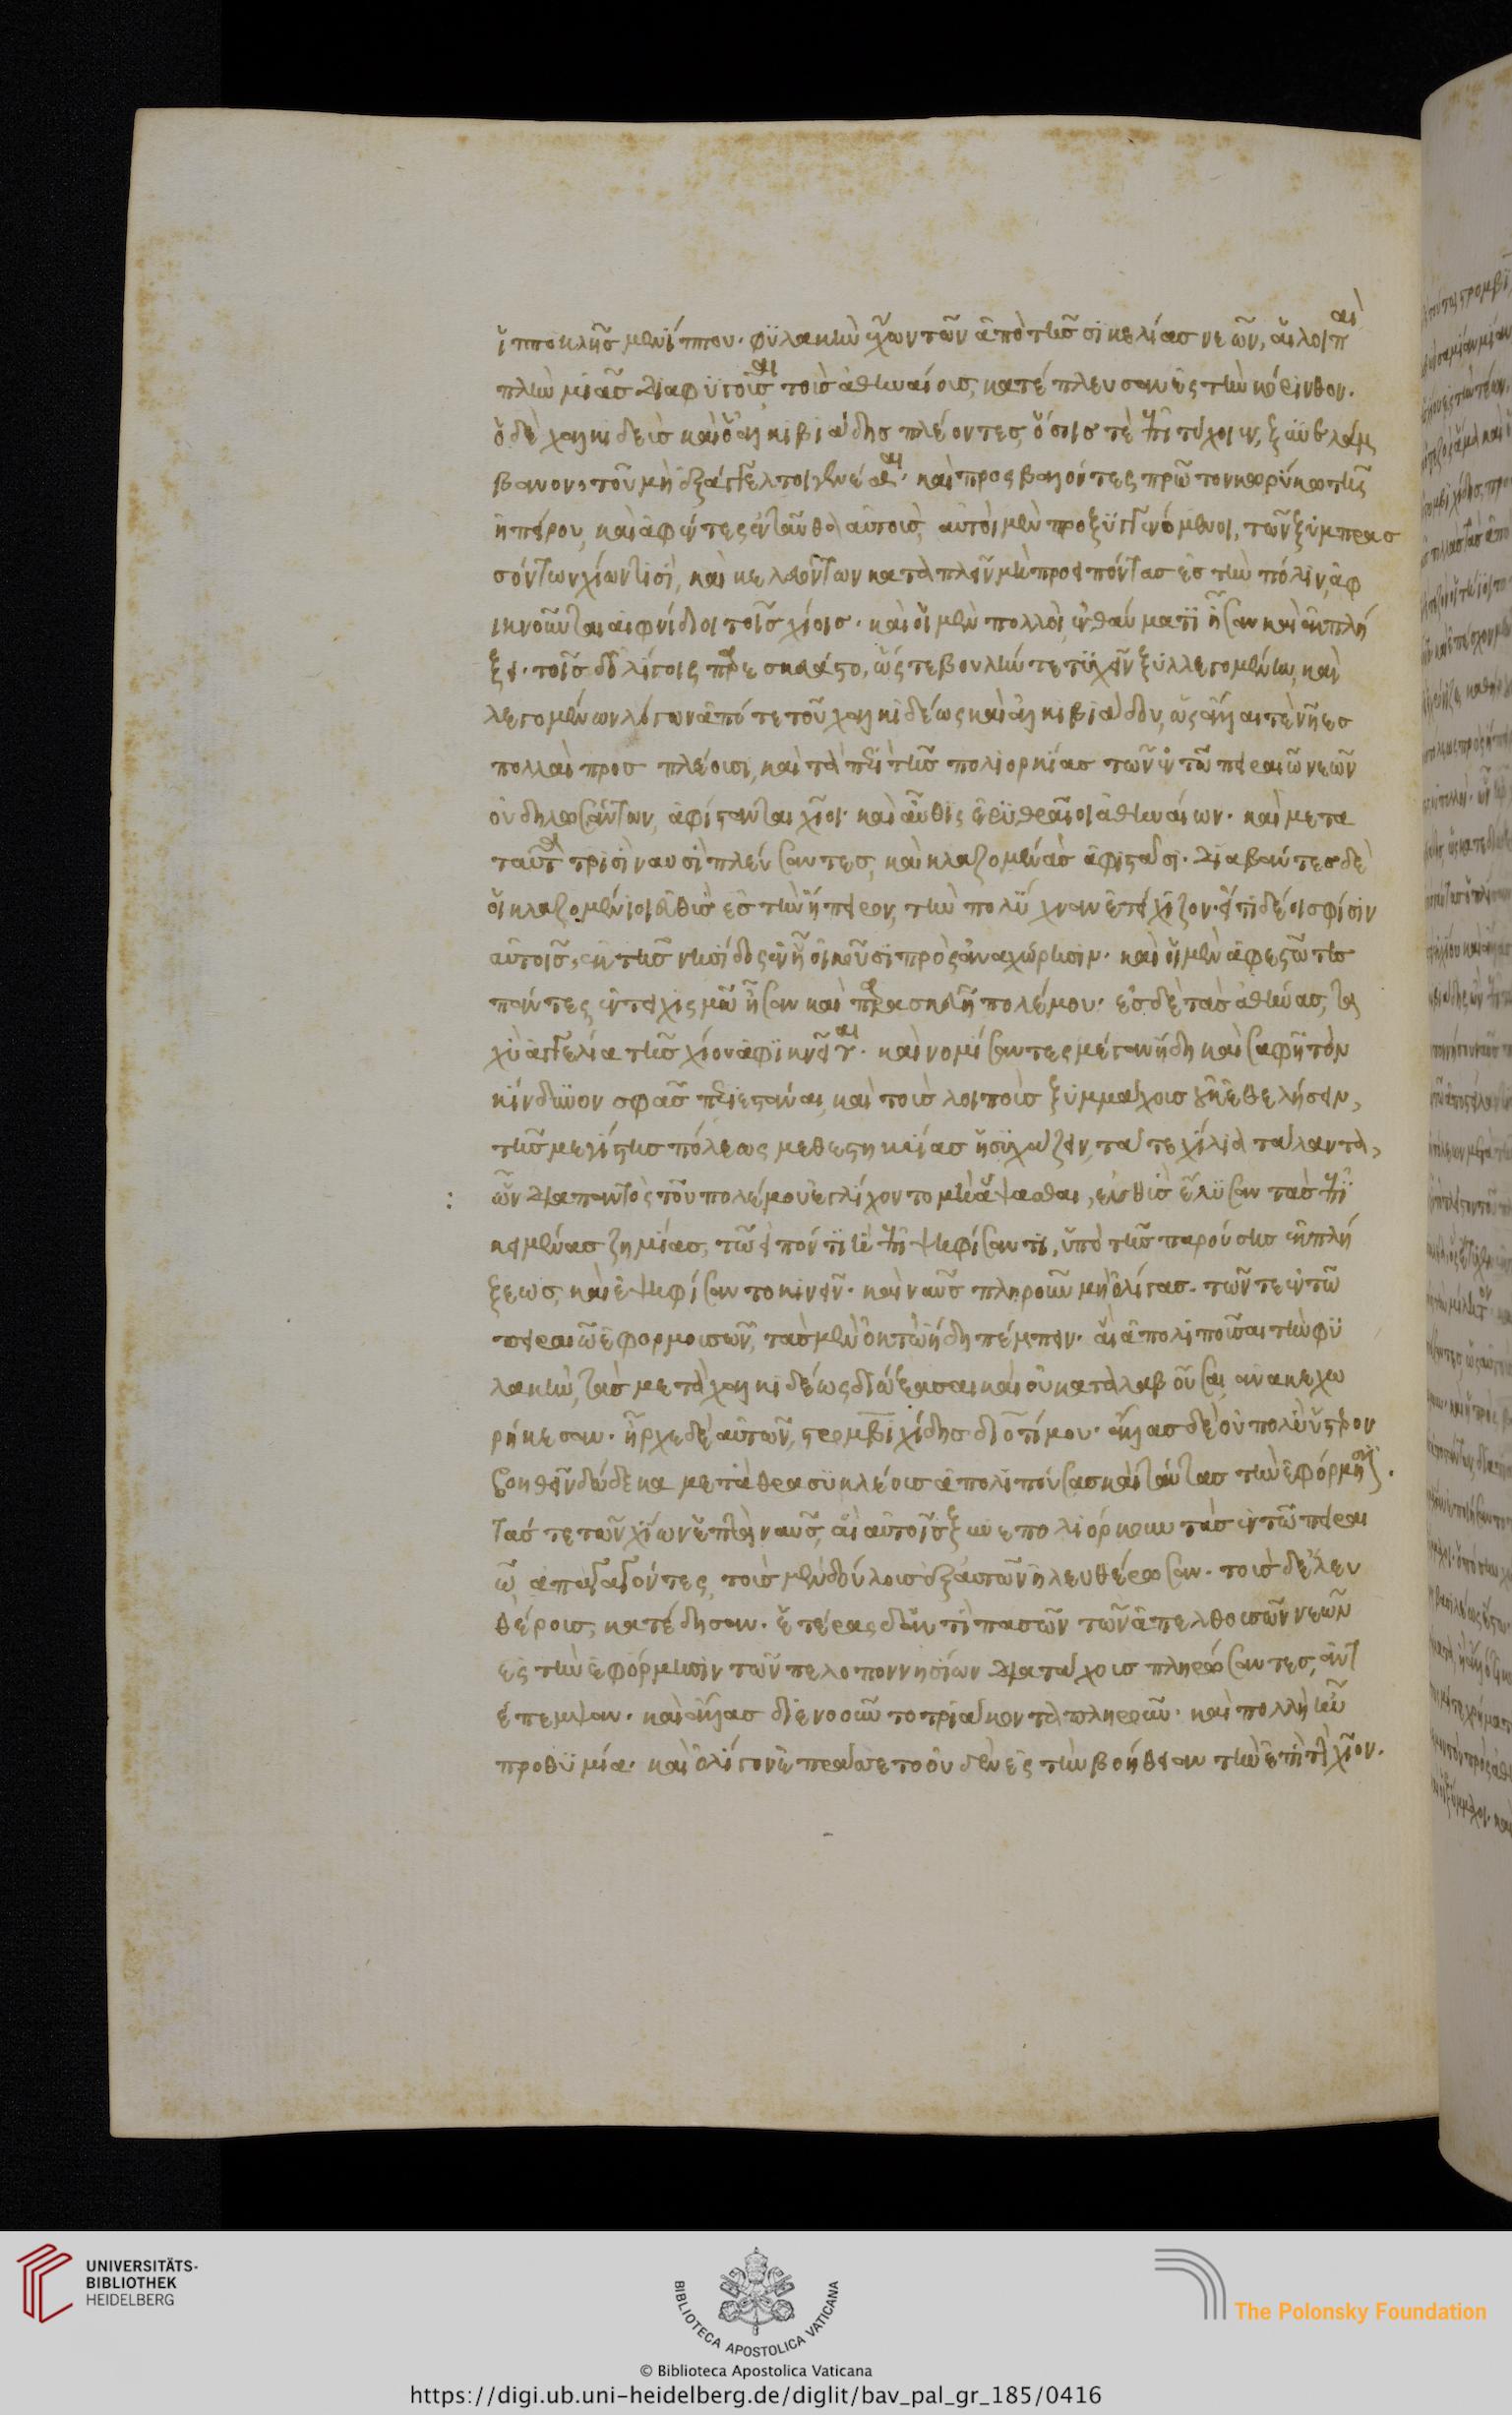 ἱπποκλῆς μενίππου· φυλακὴν ἔχων τῶν ἀπὸ τῆς σικελίας νεῶν, αἱ λοιπαὶ
πλὴν μιᾶς διαφυγοῦσαι τοὺς ἀθηναίους, κατέπλευσαν ἐς τὴν κόρινθον.
ὁ δὲ χαλκιδεὺς καὶ ὁ ἀλκιβιάδης πλέοντες, ὅσοις τε ἐπιτύχοιεν, ξυνελάμ
βανον, τοῦ μὴ ἐξάγγελτοι γενέσθαι· καὶ προσβαλόντες πρῶτον κωρύκω τῆς
ἠπείρου, καὶ ἀφέντες ἐνταῦθα αὐτοὺς, αὐτοὶ μὲν προξυγγενόμενοι, τῶν ξυμπρασ
σόντων χίων τισὶ, καὶ κελευόντων καταπλεῖν μὴ προειπόντας ἐς τὴν πόλιν, ἀφ
ικνοῦνται αἰφνίδιοι τοῖς χίοις. καὶ οἱ μὲν πολλοὶ, ἐν θαύματι ἦσαν καὶ ἐκπλή
ξει. τοῖς δ' ὀλίγοις παρεσκεύαστο, ὥστε βουλήν τε τυχεῖν ξυλλεγομένην, καὶ
λεγομένων λόγων ἀπό τε τοῦ χαλκιδέως καὶ ἀλκιβιάδου, ὡς ἄλλαι τε νῆες
πολλαὶ προσπλέουσι, καὶ τὰ περὶ τῆς πολιορκίας τῶν ἐν τῶ πειραιῶ νεῶν
οὐ δηλωσάντων, ἀφίστανται χῖοι· καὶ αὖθις ἐρυθραῖοι ἀθηναίων· καὶ μετὰ
ταῦτα τρισὶ ναυσὶ πλεύσαντες, καὶ κλαζομενὰς ἀφιστᾶσι. διαβάντες δὲ
οἱ κλαζομένιοι εὐθὺς ἐς τὴν ἤπειρον, τὴν πολίχναν ἐτείχιζον· εἴ τι δέοι σφίσιν
αὐτοῖς, ἐκ τῆς νησίδος ἐν ᾗ οἰκοῦσι πρὸς ἀναχώρησιν. καὶ οἱ μὲν ἀφεστῶτες
πάντες, ἐν τειχισμῶ ἦσαν καὶ παρασκευῆ πολέμου· ἐς δὲ τὰς ἀθήνας, τα
χὺ ἀγγελία τῆς χίου ἀφικνεῖται. καὶ νομίσαντες μέγαν ἤδη καὶ σαφῆ τὸν
κίνδυνον σφᾶς περιεστάναι, καὶ τοὺς λοιποὺς ξυμμάχους οὐκ ἐθελήσειν,
τῆς μεγίστης πόλεως μεθεστηκυίας ἡσυχάζειν, τά τε χίλια τάλαντα,
ὧν διαπαντὸς τοῦ πολέμου ἐγλίχοντο μὴ ἅψασθαι, εὐθὺς ἔλυσαν τὰς ἐπι
κειμένας ζημίας, τῶ εἰπόντι ἢ ἐπιψηφίσαντι, ὑπὸ τῆς παρούσης ἐκπλή
ξεως, καὶ ἐψηφίσαντο κινεῖν· καὶ ναῦς πληροῦν μὴ ὀλίγας. τῶν τε ἐν τῶ
πειραιῶ ἐφορμουσῶν, τὰς μὲν ὀκτὼ ἤδη πέμπειν· αἳ ἀπολιποῦσαι τὴν φυ
λακὴν, τὰς μετὰ χαλκιδέως διώξασαι καὶ οὐ καταλαβοῦσαι, ἀνακεχω
ρήκεσαν. ἦρχε δὲ αὐτῶν, στρομβιχίδης διοτίμου· ἄλλας δὲ οὐ πολὺ ὕστερον
βοηθεῖν δώδεκα μετὰ θρασυκλέους ἀπολιπούσας καὶ ταύτας τὴν ἐφόρμησιν.
τάς τε τῶν χίων ἑπτὰ ναῦς, αἳ αὐτοῖς ξυνεπολιόρκουν τὰς ἐν τῶ πειραι
ῶ, ἀπαγαγόντες, τοὺς μὲν δούλους ἐξ αὐτῶν ἠλευθέρωσαν. τοὺς δ' ἐλευ
θέρους, κατέδησαν. ἑτέρας δ' ἀντὶ πασῶν τῶν ἀπελθουσῶν νεῶν
ἐς τὴν ἐφόρμησιν τῶν πελοποννησίων διατάχους πληρώσαντες, ἀντ
έπεμψαν. καὶ ἄλλας διενοοῦντο τριάκοντα πληροῦν· καὶ πολλὴ ἦν
προθυμία· καὶ ὀλίγον ἐπράσσετο οὐδὲν ἐς τὴν βοήθειαν τὴν ἐπὶ τὴν χίον.
UNIVERSITÄTS-
BIBLIOTHEK
HEIDELBERG
BIBLIOTECA APOSTOLICA VATICANA
The Polonsky Foundation
© Biblioteca Apostolica Vaticana
https://digi.ub.uni-heidelberg.de/diglit/bav_pal_gr_185/0416